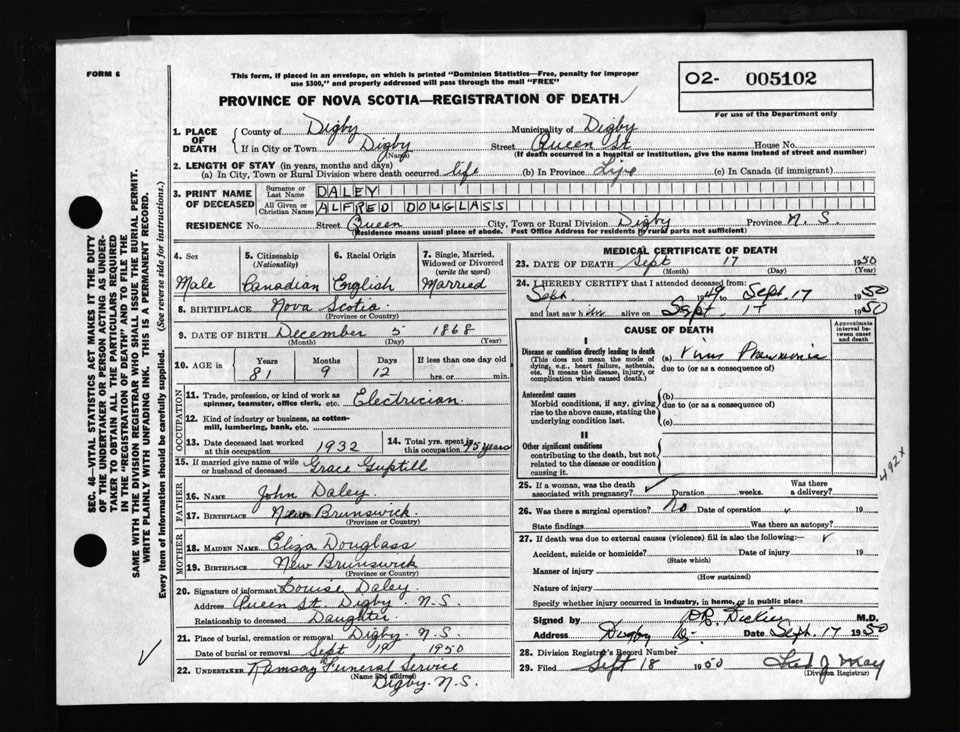 FORM 6
This form, if placed in an envelope, on which is printed "Dominion Statistics—Free, penalty for improper
use $300," and properly addressed will pass through the mail "FREE"
O2- 005102
For use of the Department only
PROVINCE OF NOVA SCOTIA—REGISTRATION OF DEATH
SEC. 46—VITAL STATISTICS ACT MAKES IT THE DUTY
OF THE UNDERTAKER OR PERSON ACTING AS UNDER-
TAKER TO OBTAIN ALL THE PARTICULARS REQUIRED
IN THE "REGISTRATION OF DEATH" AND TO FILE THE
SAME WITH THE DIVISION REGISTRAR WHO SHALL ISSUE THE BURIAL PERMIT.
WRITE PLAINLY WITH UNFADING INK. THIS IS A PERMANENT RECORD.
Every item of information should be carefully supplied. (See reverse side for instructions.)
1. PLACE OF DEATH County of Digby Municipality of Digby
If in City or Town Digby (Name) Street Queen St House No.
(If death occurred in a hospital or institution, give the name instead of street and number)
2. LENGTH OF STAY (in years, months and days)
(a) In City, Town or Rural Division where death occurred life (b) In Province Life (c) In Canada (if immigrant)
3. PRINT NAME OF DECEASED Surname or Last Name DALEY
All Given or Christian Names ALFRED DOUGLASS
RESIDENCE No. Street Queen City, Town or Rural Division Digby Province N. S.
(Residence means usual place of abode. Post Office Address for residents in rural parts not sufficient)
4. Sex 5. Citizenship (Nationality) 6. Racial Origin 7. Single, Married, Widowed or Divorced (write the word)
Male Canadian English Married
8. BIRTHPLACE Nova Scotia
(Province or Country)
9. DATE OF BIRTH December 5 1868
(Month) (Day) (Year)
10. AGE in Years Months Days If less than one day old
81 9 12 hrs. or min.
OCCUPATION
11. Trade, profession, or kind of work as spinner, teamster, office clerk, etc. Electrician
12. Kind of industry or business, as cotton-mill, lumbering, bank, etc.
13. Date deceased last worked at this occupation 1932 14. Total yrs. spent in this occupation 45 years
15. If married give name of wife or husband of deceased Grace Guptill
FATHER
16. Name John Daley
17. Birthplace New Brunswick
(Province or Country)
MOTHER
18. Maiden Name Eliza Douglass
19. Birthplace New Brunswick
(Province or Country)
20. Signature of informant Louise Daley
Address Queen St. Digby. N.S.
Relationship to deceased Daughter
21. Place of burial, cremation or removal Digby. N.S.
Date of burial or removal Sept 19 1950
22. UNDERTAKER Ramsay Funeral Service
(Name and address)
Digby. N.S.
MEDICAL CERTIFICATE OF DEATH
23. DATE OF DEATH Sept 17 1950
(Month) (Day) (Year)
24. I HEREBY CERTIFY that I attended deceased from:
Sept 1949 to Sept. 17 1950
and last saw him alive on Sept. 17 1950
CAUSE OF DEATH
Approximate interval between onset and death
I
Disease or condition directly leading to death
(This does not mean the mode of dying, e.g., heart failure, asthenia, etc. It means the disease, injury, or complication which caused death.)
(a) Virus Pneumonia
due to (or as a consequence of)
Antecedent causes
Morbid conditions, if any, giving rise to the above cause, stating the underlying condition last.
(b)
due to (or as a consequence of)
(c)
II
Other significant conditions
contributing to the death, but not related to the disease or condition causing it.
492X
25. If a woman, was the death associated with pregnancy? Duration weeks. Was there a delivery?
26. Was there a surgical operation? No Date of operation 19
State findings Was there an autopsy?
27. If death was due to external causes (violence) fill in also the following:—
Accident, suicide or homicide? Date of injury 19
(State which)
Manner of injury
(How sustained)
Nature of injury
Specify whether injury occurred in industry, in home, or in public place
Signed by Dickie M.D.
Address Digby Date Sept. 17 1950
28. Division Registrar's Record Number
29. Filed Sept 18 1950 J May
(Division Registrar)